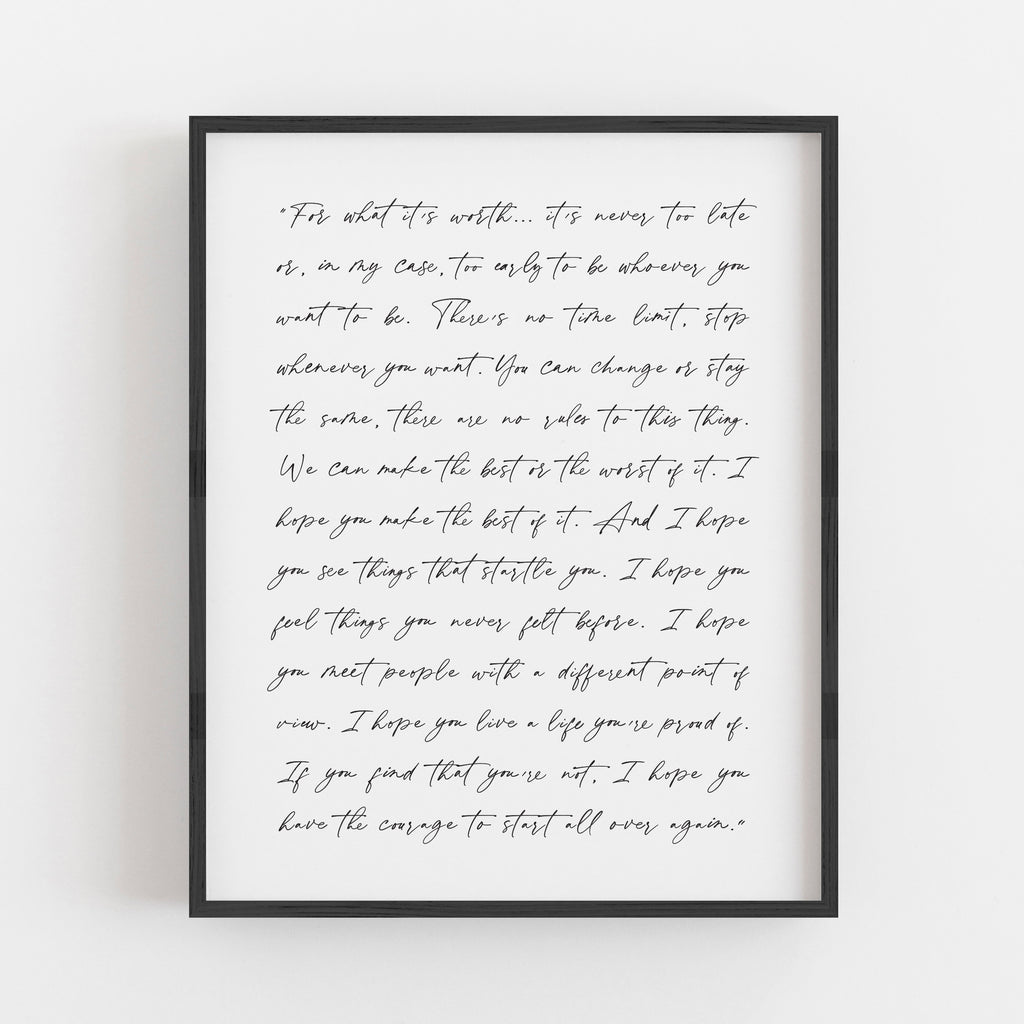 "For what it's worth... it's never too late
or, in my case, too early to be whoever you
want to be. There's no time limit, stop
whenever you want. You can change or stay
the same, there are no rules to this thing.
We can make the best or the worst of it. I
hope you make the best of it. And I hope
you see things that startle you. I hope you
feel things you never felt before. I hope
you meet people with a different point of
view. I hope you live a life you're proud of.
If you find that you're not, I hope you
have the courage to start all over again."